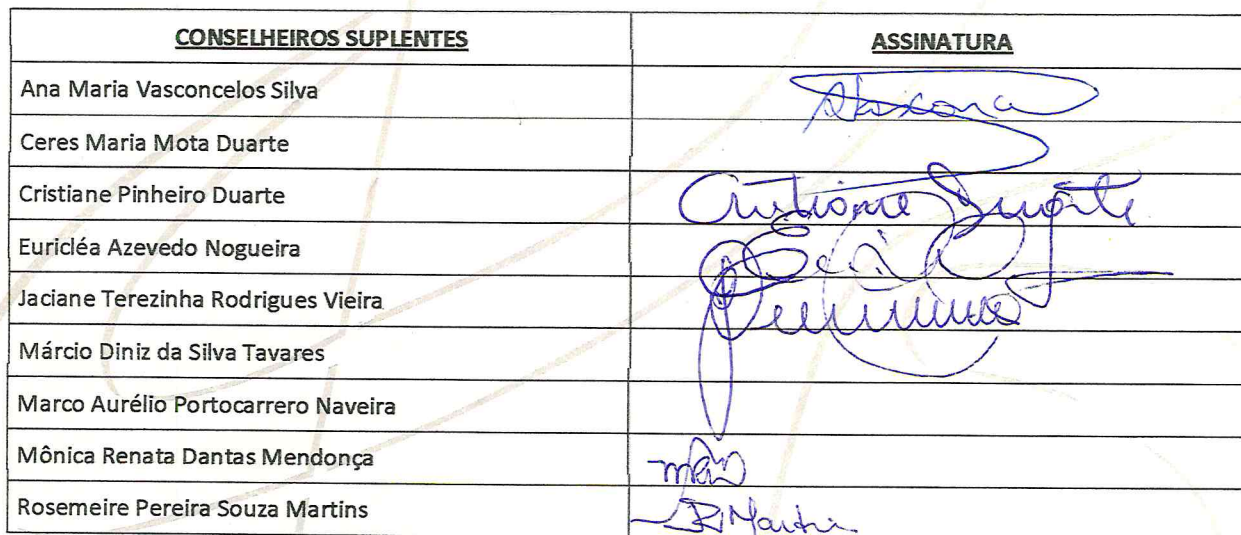 CONSELHEIROS SUPLENTES ASSINATURA
Ana Maria Vasconcelos Silva
Ceres Maria Mota Duarte
Cristiane Pinheiro Duarte Cristiane Duarte
Euricléa Azevedo Nogueira
Jaciane Terezinha Rodrigues Vieira
Márcio Diniz da Silva Tavares
Marco Aurélio Portocarrero Naveira
Mônica Renata Dantas Mendonça
Rosemeire Pereira Souza Martins RMartins